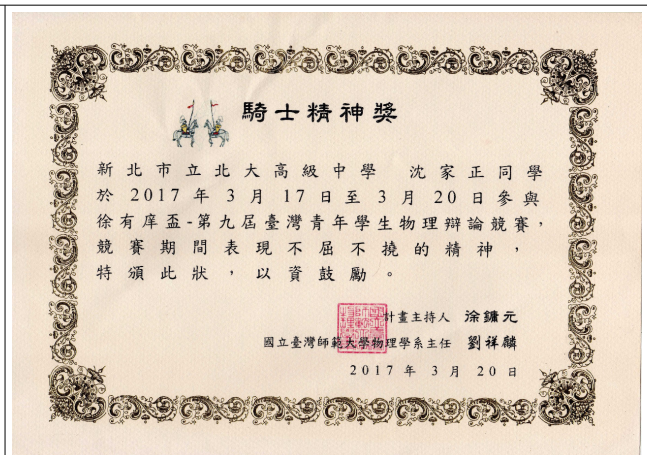 騎士精神獎
新北市立北大高級中學 沈家正同學
於 2017 年 3 月 17 日至 3 月 20 日參與
徐有庠盃-第九屆臺灣青年學生物理辯論競賽,
競賽期間表現不屈不撓的精神,
特頒此狀,以資鼓勵。
計畫主持人 徐鏞元
國立臺灣師範大學物理學系主任 劉祥麟
2017 年 3 月 20 日